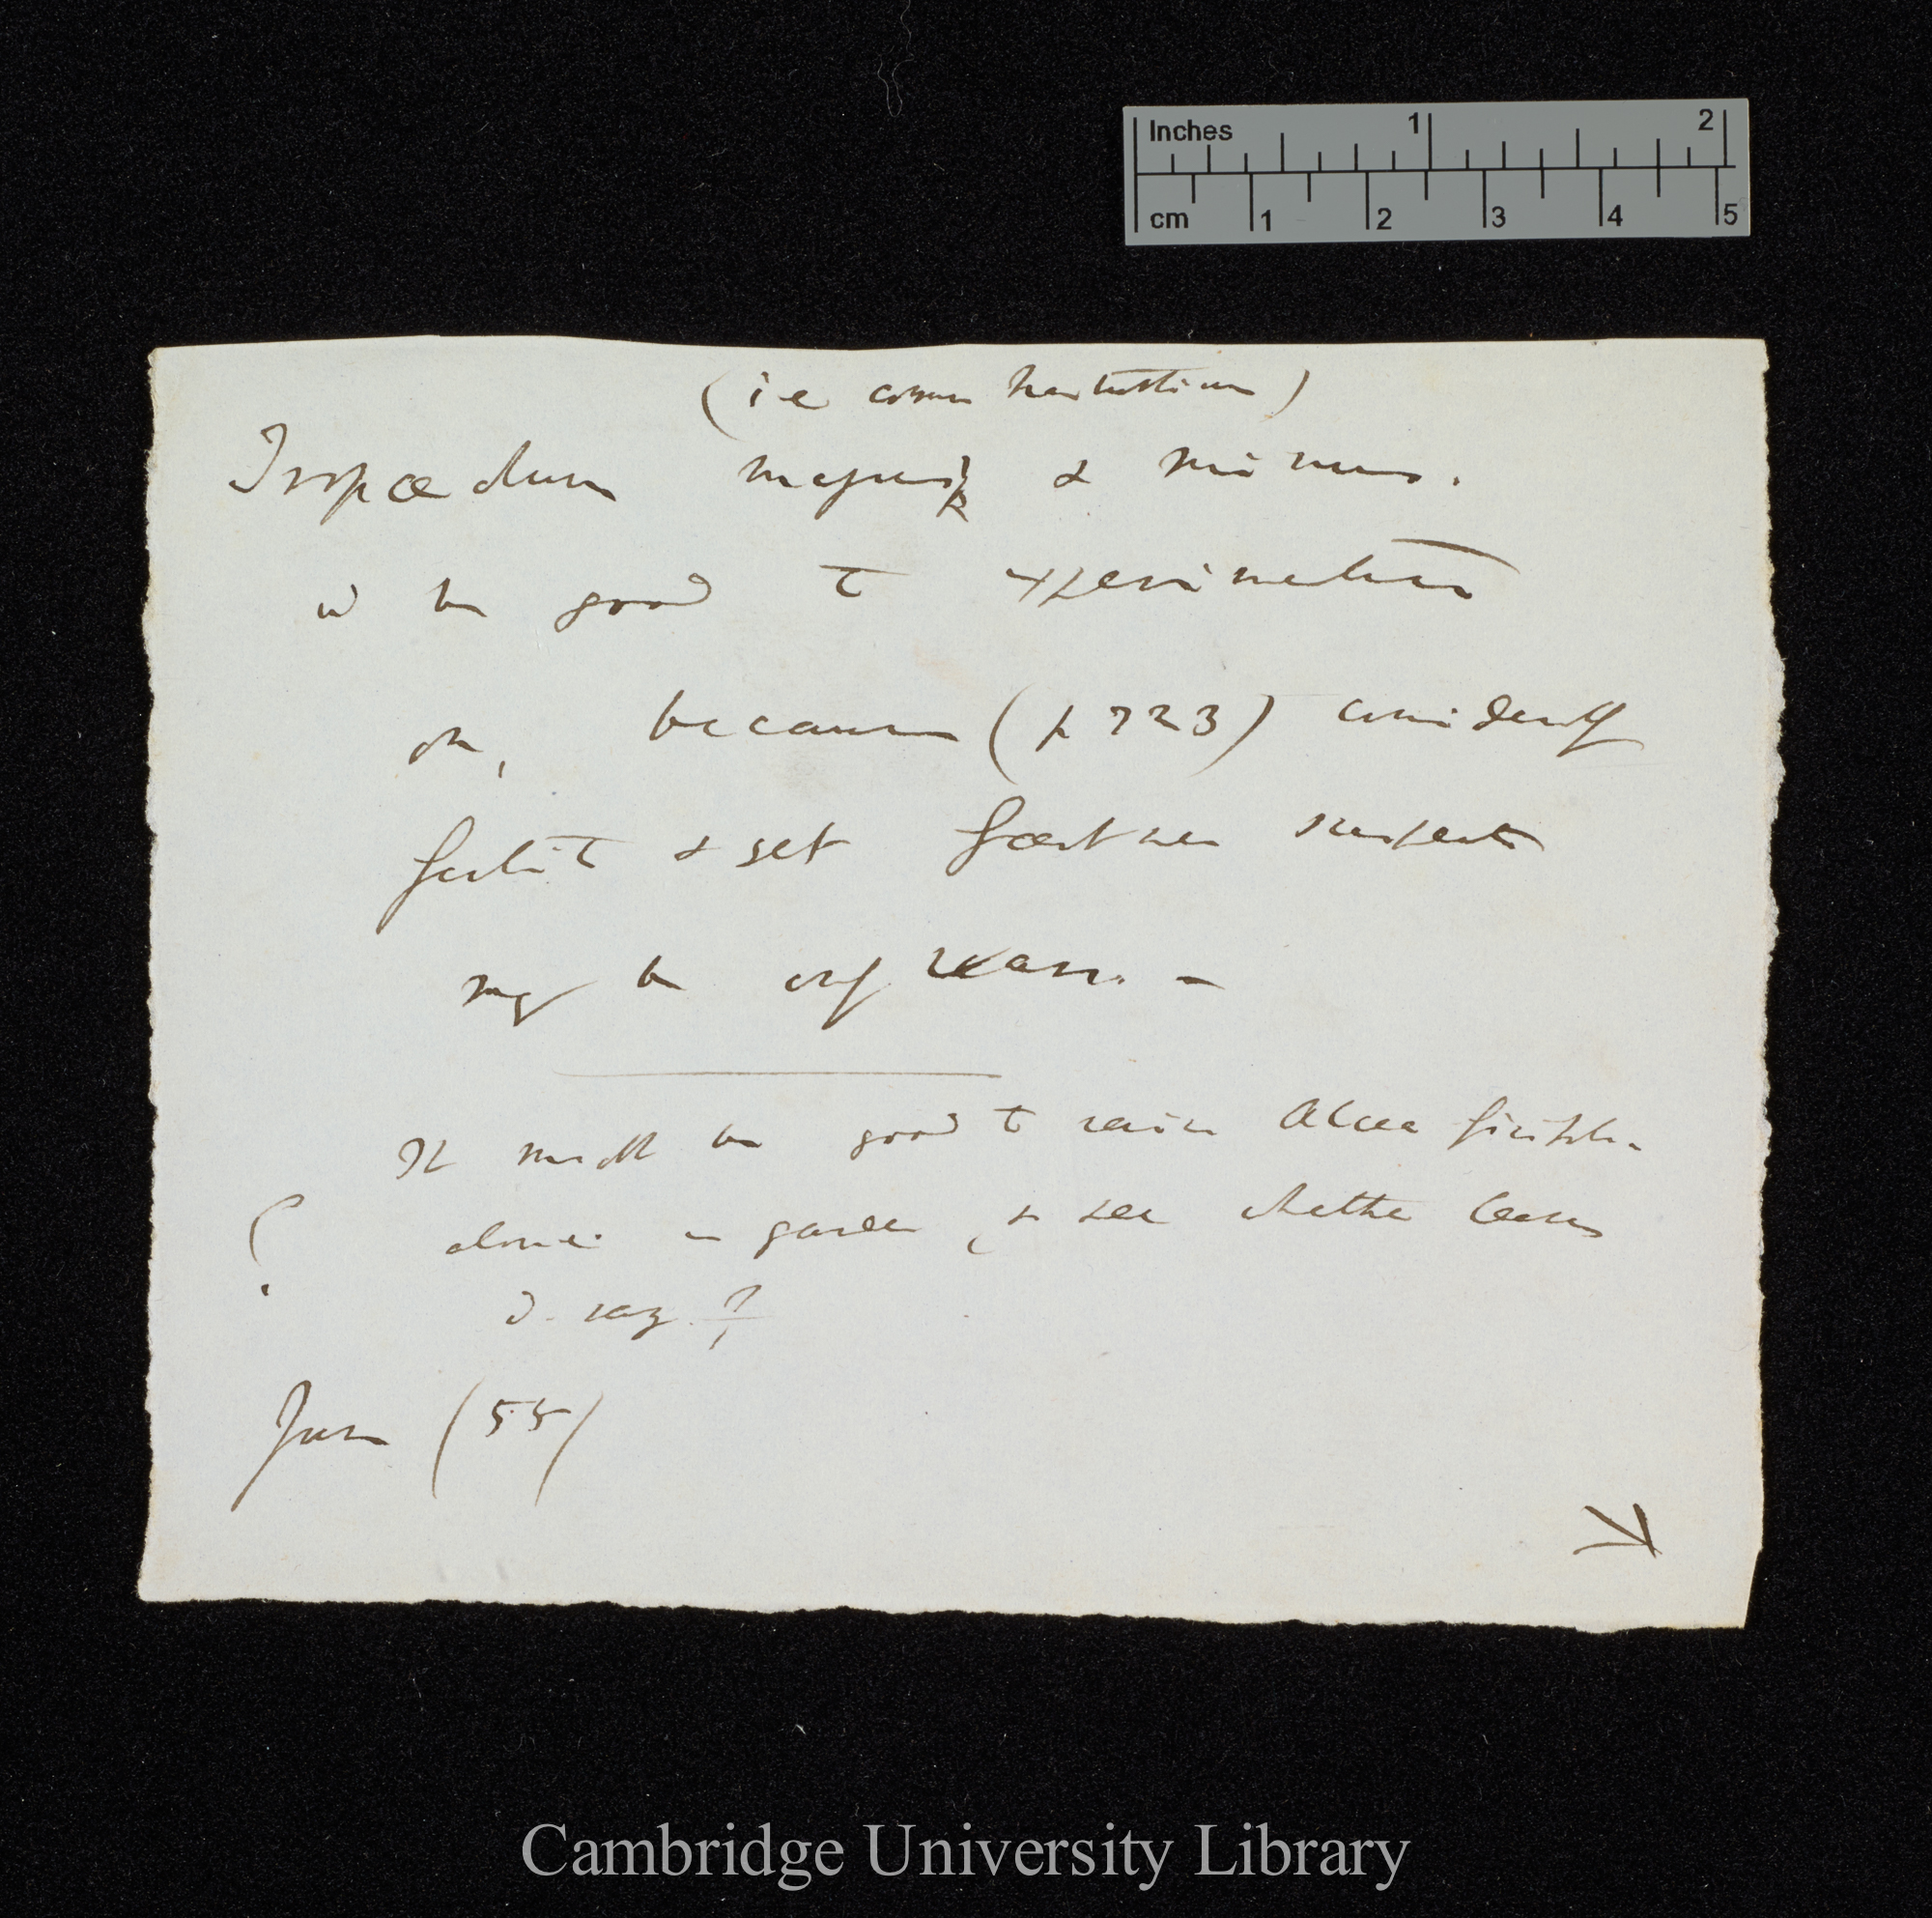 Inches 1 2
cm 1 2 3 4 5
(i.e. common Nasturtium)
Tropæolum majus & minus.
wd be good to experimentise
on, because (p 723) considerably
fertile & yet Gærtner
may be only
It would be good to raise Alcea ficifolia
? alone in garden, & see whether leaves
Jan (55)
Cambridge University Library